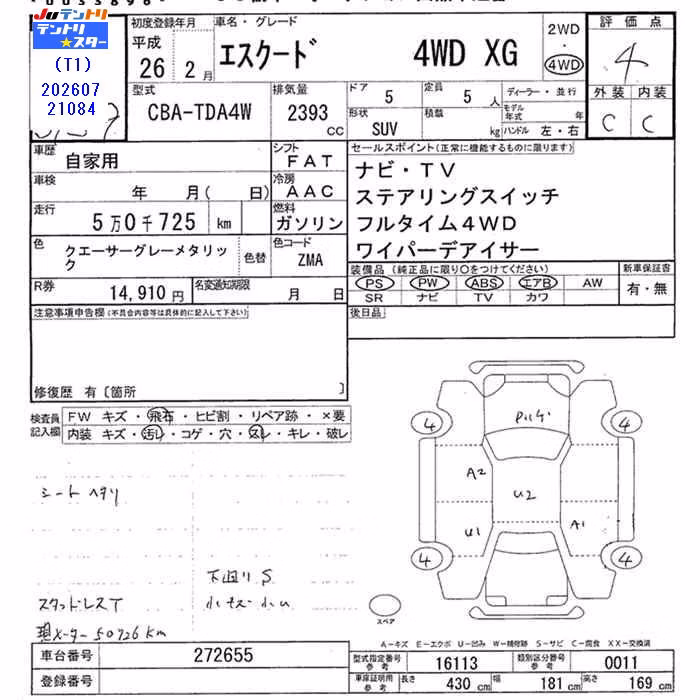 Juテントリ
テントリ★スター
(T1)
202607
21084
初度登録年月
平成
26年 2月
車名・グレード
エスクード 4WD XG
2WD
・
4WD
評価点
4
型式
CBA-TDA4W
排気量
2393 CC
ドア
5
定員
5 人
形状
SUV
積載
kg
ディーラー・並行
モデル年式 年
ハンドル 左・右
外装 内装
C C
車歴
自家用
シフト
FAT
車検
年 月( 日)
冷房
AAC
走行
5万0千725 km
燃料
ガソリン
色
クエーサーグレーメタリック
色替
色コード
ZMA
R券
14,910円
名変通知期限
月 日
セールスポイント(正常に機能するものに限ります)
ナビ・TV
ステアリングスイッチ
フルタイム4WD
ワイパーデアイサー
装備品(純正品に限り○をつけてください)
新車保証書
PS PW ABS エアB AW
SR ナビ TV カワ
有・無
注意事項申告欄(不具合内容等は具体的に記入して下さい)
後日品
修復歴 有〔箇所 〕
検査員記入欄
FW キズ・飛石・ヒビ割・リペア跡・×要
内装 キズ・汚レ・コゲ・穴・スレ・キレ・破レ
シートヘタリ
下廻りS
スタッドレスT
現メーター50726km
4
4
A2
U2
U1
A1
4
4
スペア
A-キズ E-エクボ U-凹み W-補修跡 S-サビ C-腐食 XX-交換済
車台番号 272655
登録番号
型式指定番号参考 16113
類別区分番号参考 0011
車庫証明用参考 長さ 430 cm 幅 181 cm 高さ 169 cm